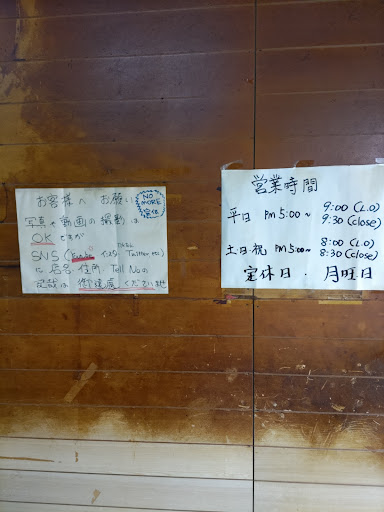 お客様へ お願い
NO
MORE
写真や動画の撮影は
OKですが
SNS (インスタ・Twitter etc)
に店名・住所・Tell Noの
記載は御遠慮くださいませ
営業時間
平日 PM 5:00~ 9:00 (L.O)
9:30 (close)
土日・祝 PM 5:00~ 8:00 (L.O)
8:30 (close)
定休日・月曜日